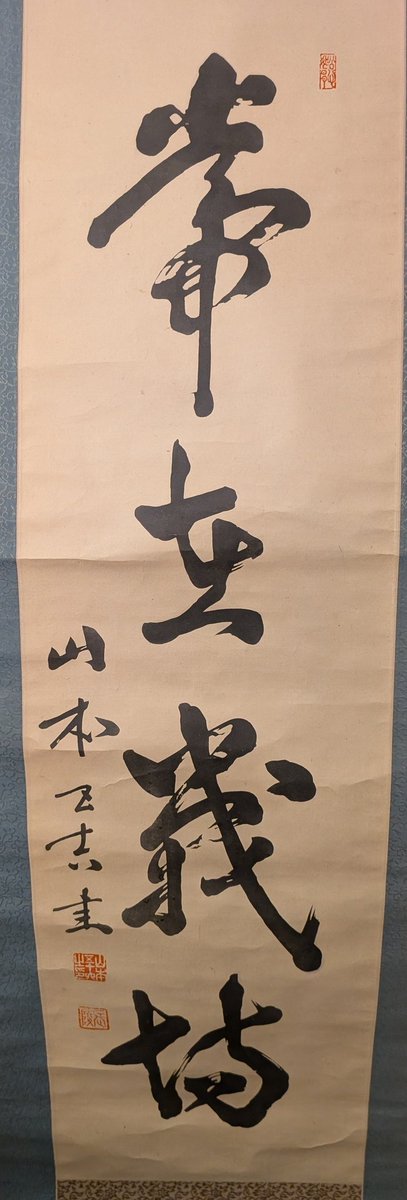 常在戰場
山本五十六書